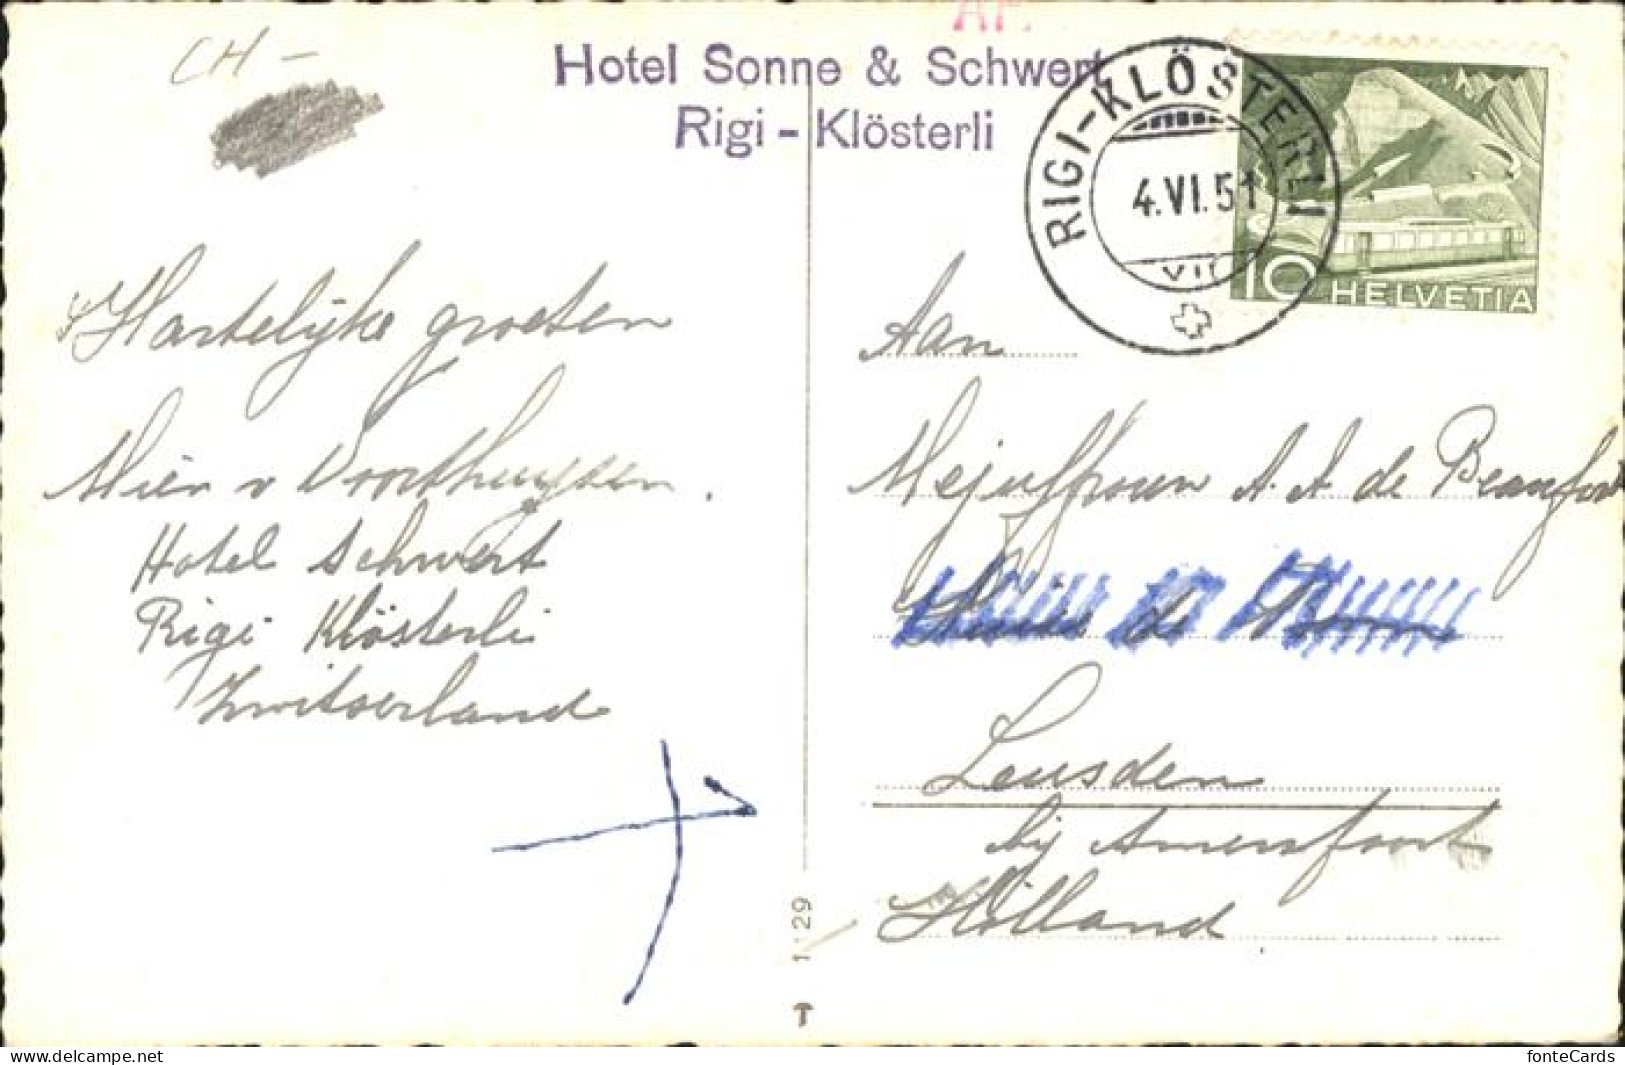 CH -
AF.
Hotel Sonne & Schwert
Rigi - Klösterli
RIGI-KLÖSTERLI
4.VI.51
VII
10 HELVETIA
Hartelijke groeten
Mien v Voorthuysen.
Hotel Schwert
Rigi Klösterli
Zwitserland
Aan
Mejuffrouw A. A. de Beaufort
Huize de
Leusden
bij Amersfoort
Holland
1129
delcampe.net
fonteCards